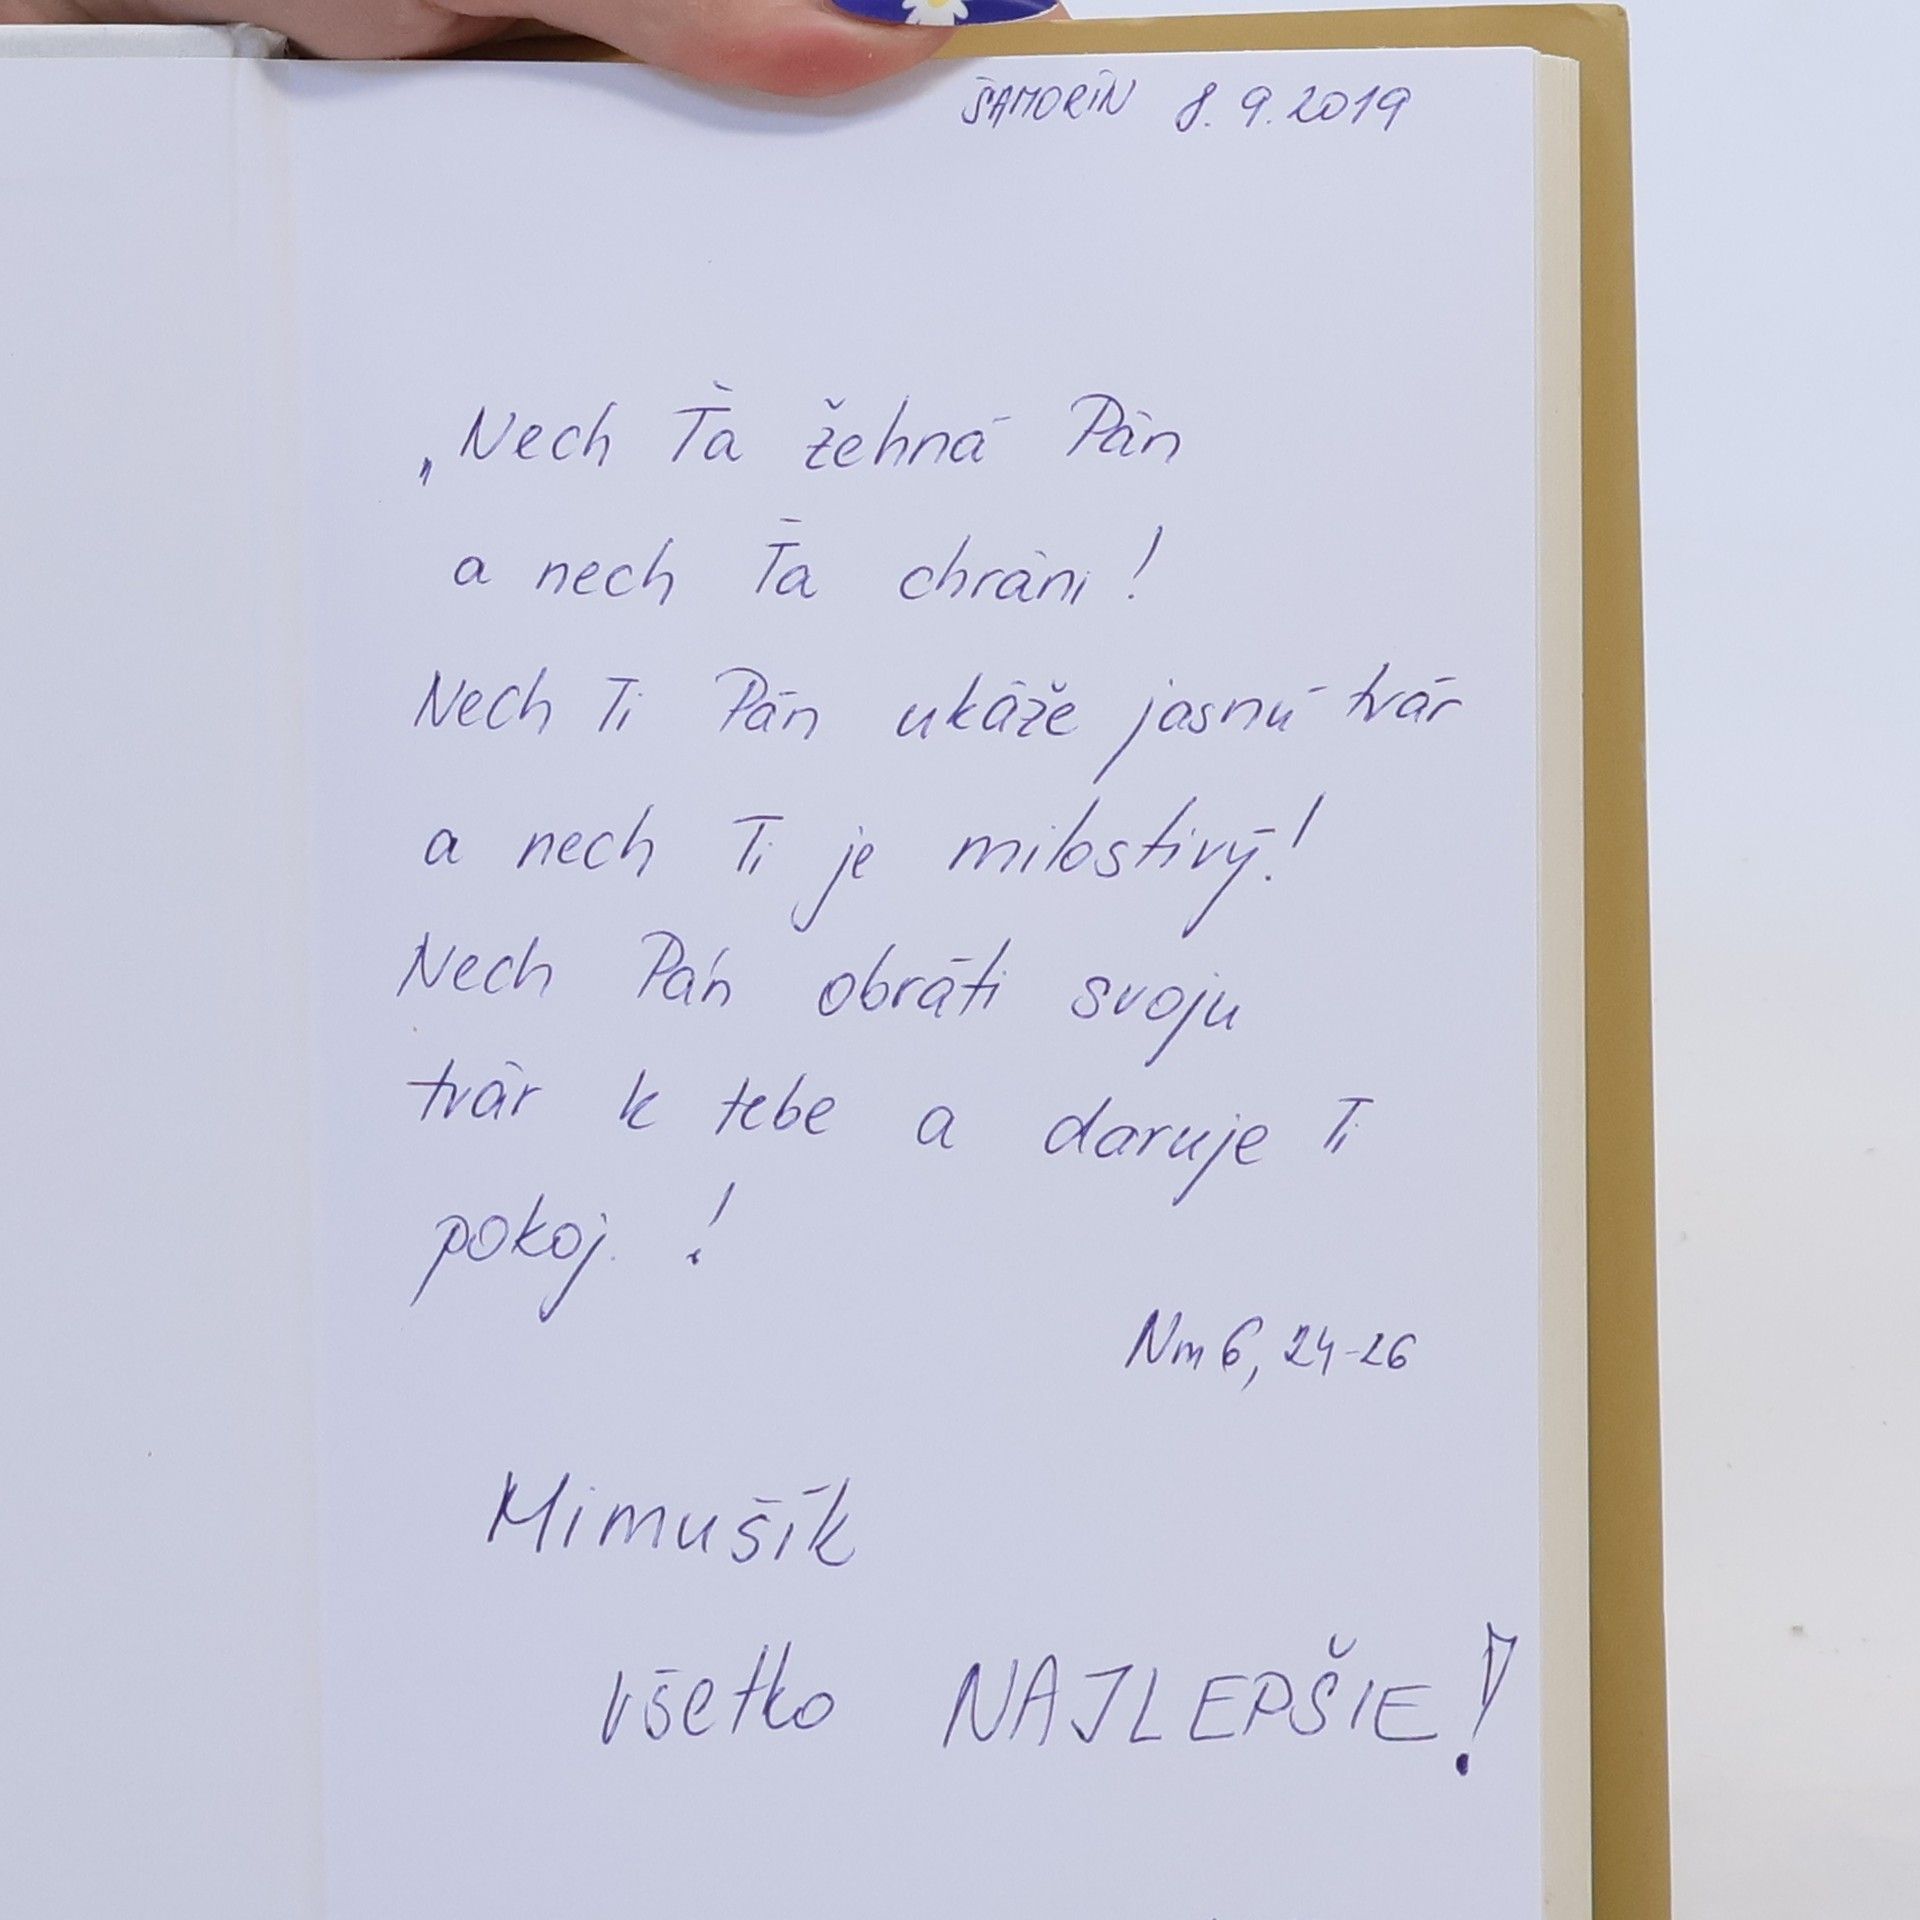 ŠAMORÍN 8.9.2019
„Nech Ťa žehná Pán
a nech Ťa chráni!
Nech Ti Pán ukáže jasnú tvár
a nech Ti je milostivý!
Nech Pán obráti svoju
tvár k tebe a daruje Ti
pokoj. !
Nm 6, 24-26
Mimušík
všetko NAJLEPŠIE!